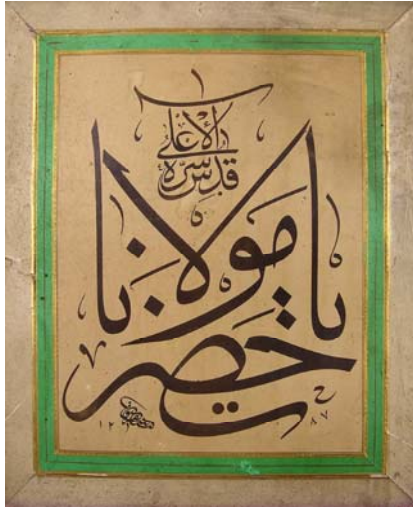 يا حضرت مولانا
قدس سره الاعلى
١٢٨٧